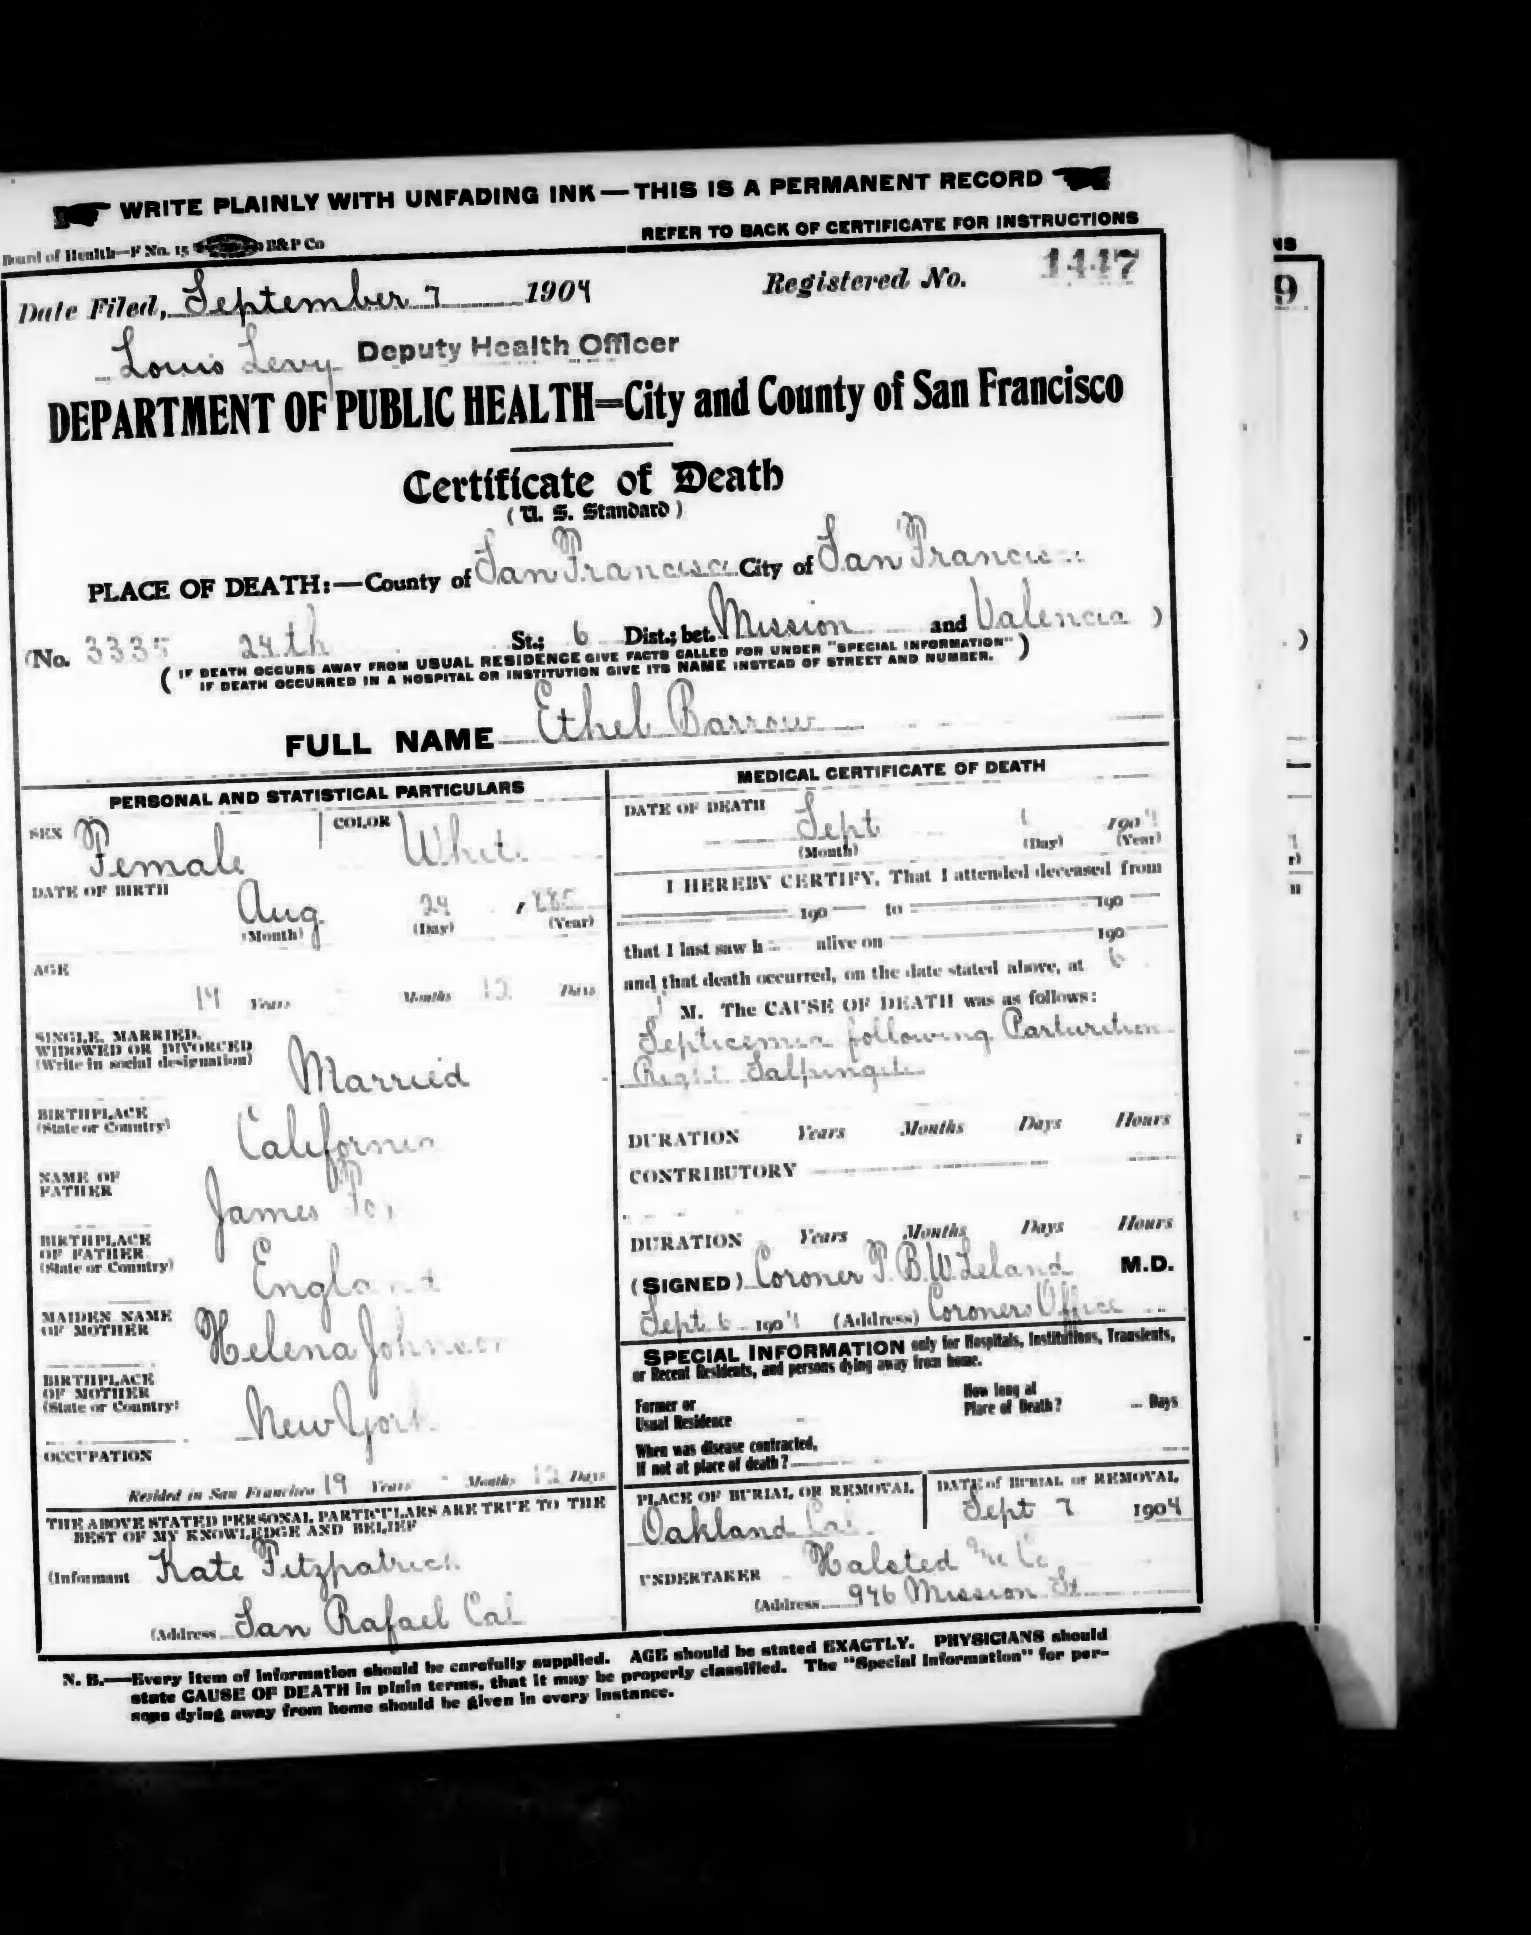 WRITE PLAINLY WITH UNFADING INK—THIS IS A PERMANENT RECORD
Board of Health—F No. 15 B&P Co
REFER TO BACK OF CERTIFICATE FOR INSTRUCTIONS
Date Filed, September 7 1904
Registered No. 1447
Louis Levy Deputy Health Officer
DEPARTMENT OF PUBLIC HEALTH—City and County of San Francisco
Certificate of Death
(U. S. Standard)
PLACE OF DEATH:—County of San Francisco City of San Francisco
(No. 3335 24th St.; 6 Dist.; bet. Mission and Valencia)
(IF DEATH OCCURS AWAY FROM USUAL RESIDENCE GIVE FACTS CALLED FOR UNDER "SPECIAL INFORMATION"
IF DEATH OCCURRED IN A HOSPITAL OR INSTITUTION GIVE ITS NAME INSTEAD OF STREET AND NUMBER.)
FULL NAME Ethel Barrow
PERSONAL AND STATISTICAL PARTICULARS
SEX Female COLOR White
DATE OF BIRTH Aug 24
(Month) (Day) (Year)
AGE
19 Years Months 12 Days
SINGLE, MARRIED,
WIDOWED OR DIVORCED
(Write in social designation) Married
BIRTHPLACE
(State or Country) California
NAME OF
FATHER James
BIRTHPLACE
OF FATHER
(State or Country) England
MAIDEN NAME
OF MOTHER Helena Johnson
BIRTHPLACE
OF MOTHER
(State or Country) New York
OCCUPATION
Resided in San Francisco 19 Years - Months 12 Days
THE ABOVE STATED PERSONAL PARTICULARS ARE TRUE TO THE
BEST OF MY KNOWLEDGE AND BELIEF
(Informant Kate Fitzpatrick
(Address San Rafael Cal
MEDICAL CERTIFICATE OF DEATH
DATE OF DEATH
Sept 1904
(Month) (Day) (Year)
I HEREBY CERTIFY, That I attended deceased from
190 to 190
that I last saw h alive on 190
and that death occurred, on the date stated above, at 6
M. The CAUSE OF DEATH was as follows:
Septicemia following Parturition
Right Salpingitis
DURATION Years Months Days Hours
CONTRIBUTORY
DURATION Years Months Days Hours
(SIGNED) Coroner T. B. W. Leland M.D.
Sept 6 1904 (Address) Coroners Office
SPECIAL INFORMATION only for Hospitals, Institutions, Transients,
or Recent Residents, and persons dying away from home.
Former or
Usual Residence
How long at
Place of Death? Days
When was disease contracted,
If not at place of death?
PLACE OF BURIAL OR REMOVAL
Oakland Cal
DATE of BURIAL or REMOVAL
Sept 7 1904
UNDERTAKER Halsted & Co
(Address 946 Mission St
N. B.—Every item of information should be carefully supplied. AGE should be stated EXACTLY. PHYSICIANS should
state CAUSE OF DEATH in plain terms, that it may be properly classified. The "Special Information" for per-
sons dying away from home should be given in every instance.